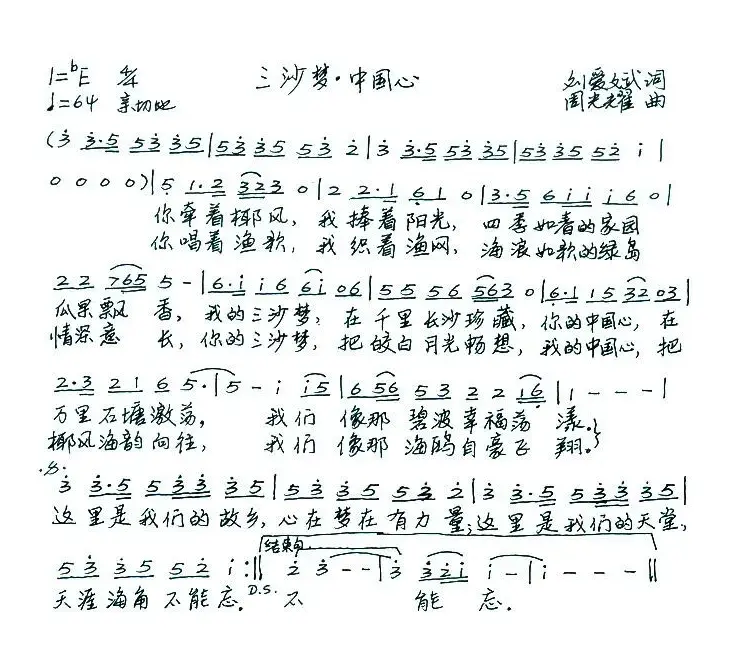 1=ᵇE 4/4 三沙梦·中国心 刘爱斌词
♩=64 亲切地 周光耀 曲
(3̇ 3̇·5 53̇ 3̇5|53̇ 3̇5 53̇ 2̇|3̇ 3̇·5 53̇ 3̇5|53̇ 3̇5 52̇ i|
0 0 0 0)|5 1·2 323 0|2 2·1 61 0|3·5 6i i i6 0|
你牵着椰风，我捧着阳光，四季如春的家园
你唱着渔歌，我织着渔网，海浪如歌的绿岛
22 765 5 -|6·i i6 6i 06|55 56 563 0|6·1 15 32 03|
瓜果飘 香，我的三沙梦，在千里长沙珍藏，你的中国心，在
情深意 长，你的三沙梦，把皎白月光畅想，我的中国心，把
2·3 21 6 5·|5 - i i5|6 56 53 2 2 16|1 - - -|
万里石塘激荡， 我们 像那 碧波幸福荡 漾。
椰风海韵向往， 我们 像那 海鸥自豪飞 翔。
·S· 3̇ 3̇·5 53̇3̇ 3̇5|53̇ 3̇5 52̇ 2̇|3̇ 3̇·5 53̇3̇ 3̇5|
这里是我们的故乡，心在梦在有力量；这里是我们的天堂，
结束句
53̇ 3̇5 52̇ i:‖ 2̇ 3̇ - -|3̇ 3̇2̇i i -|i - - -‖
天涯海角不能忘。D.S. 不 能 忘。